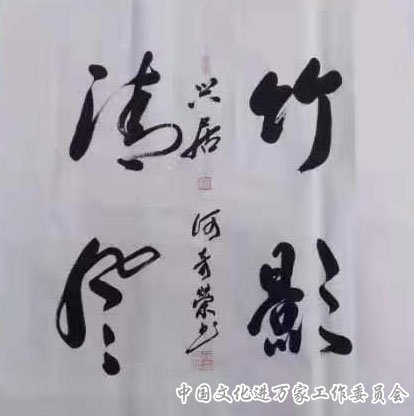 竹影
清风
兴居
何奇荣书
中国文化进万家工作委员会